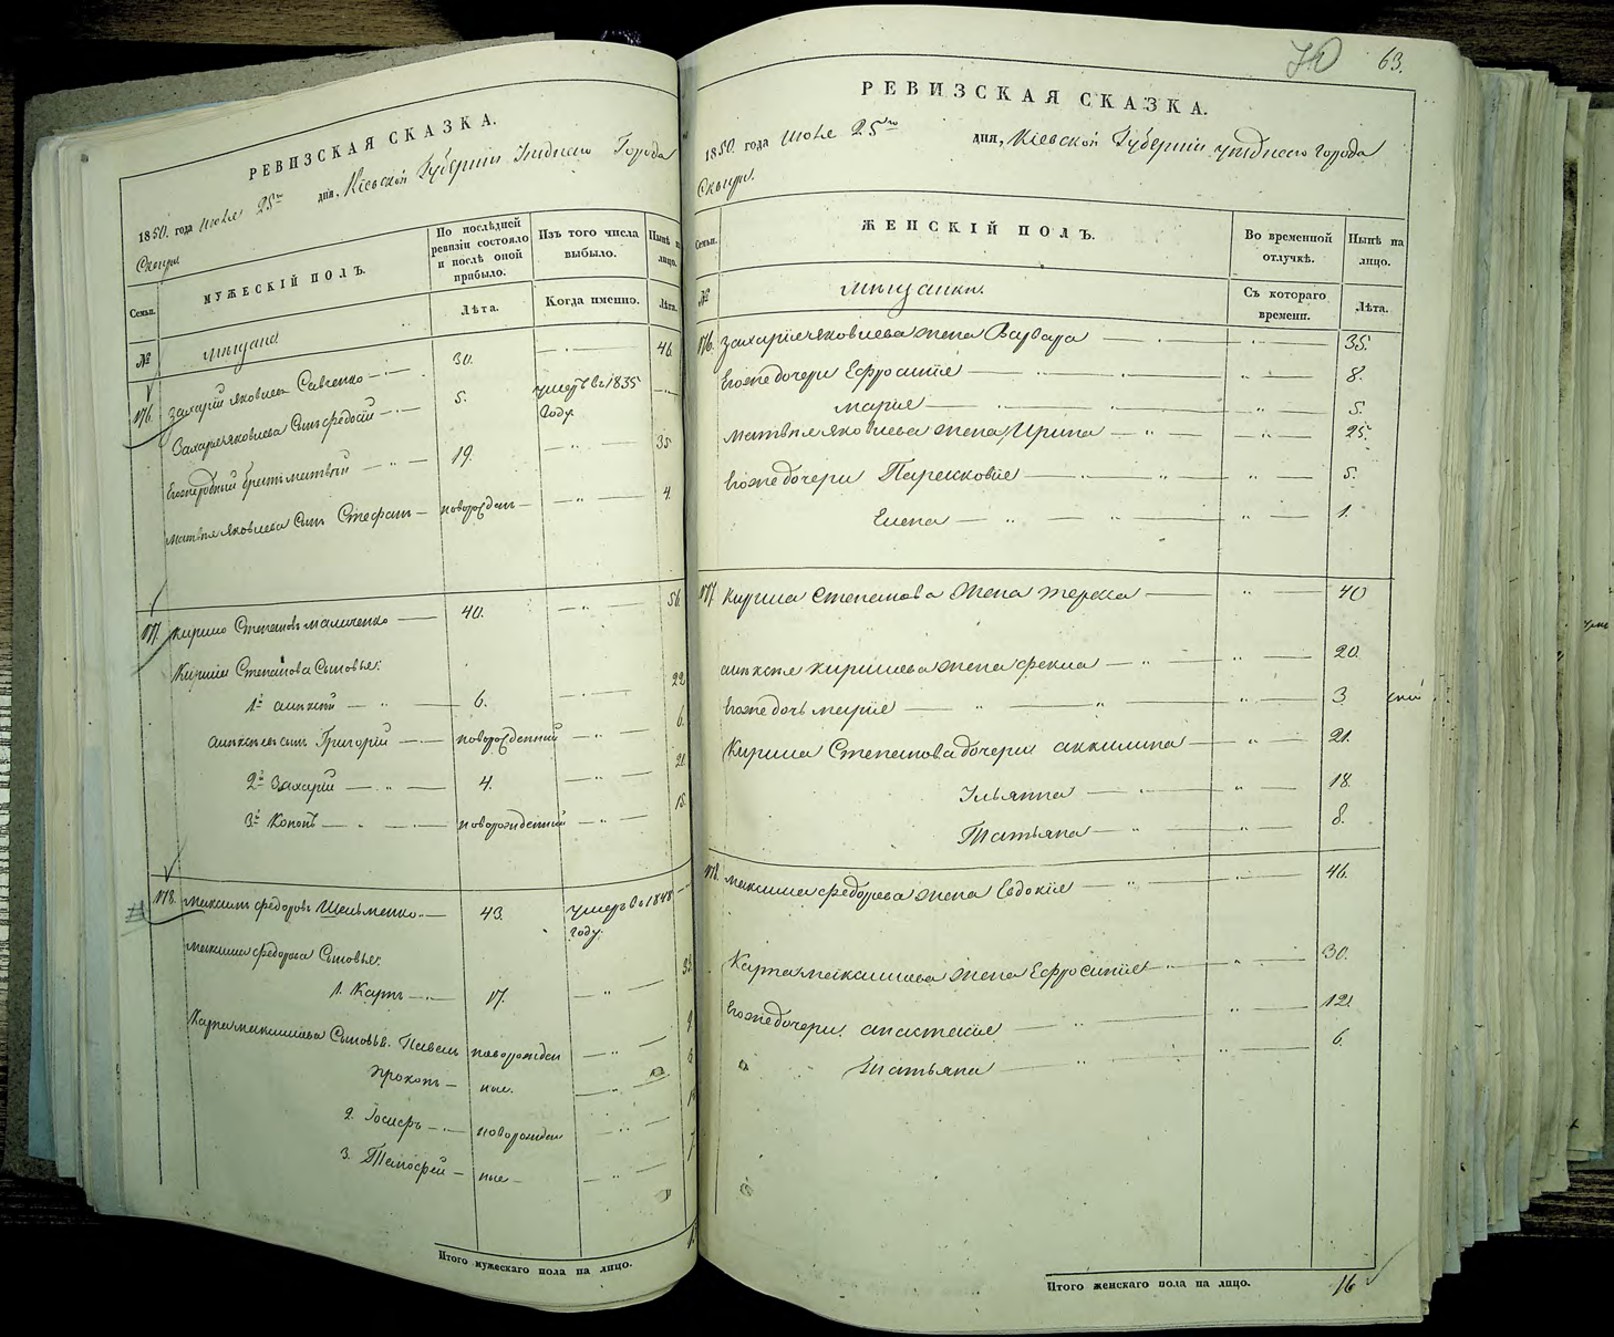 РЕВИЗСКАЯ СКАЗКА.
1850. года Июля 25го дня, Кіевской Губерніи Уѣзднаго Города
Сквыри
Семьи. МУЖЕСКІЙ ПОЛЪ. По послѣдней ревизіи состояло и послѣ оной прибыло. Изъ того числа выбыло. Нынѣ на лицо.
№ Лѣта. Когда именно. Лѣта.
мѣщане
176. Захарій Яковлевъ Савченко 30. 46.
Захарія Яковлева Сынъ Федосій 5. умеръ въ 1835 году.
Его же родный братъ матвѣй 19. 35
матвѣя Яковлева Сынъ Стефанъ новорожден 4.
177. Кирило Степановъ Маличенко 40. 56.
Кирила Степанова Сыновья:
1й алексѣй 6. 22
алексѣя сынъ Григорій новорожденный 6.
2й Захарій 4. 21.
3й Кононъ новорожденный 15.
178. Максимъ Федоровъ Шельменко 43. умеръ въ 1848 году.
Максима Федорова Сыновья:
1. Карпъ 17. 33.
Карпа максимова Сыновья. Павелъ новорожден 9
Прокопъ ные. 6
2. Іосифъ новорожден
3. Тимофей ные 7
Итого мужескаго пола на лицо.
70 63.
РЕВИЗСКАЯ СКАЗКА.
1850. года Июля 25го дня, Кіевской Губерніи уѣзднаго города
Сквыри.
Семьи. ЖЕНСКІЙ ПОЛЪ. Во временной отлучкѣ. Нынѣ на лицо.
№ Съ котораго времени. Лѣта.
мѣщанки.
176. Захарія Яковлева жена Варвара 35.
Его же дочери Ефросинія 8.
Марія 5.
Матвѣя Яковлева жена Ирина 25.
Его же дочери Парасковія 5.
Елена 1.
177. Кирила Степанова жена Фекла 40
алексѣя Кирилова жена Фекла 20.
Его же дочь марія 3
Кирила Степанова дочери акилина 21.
Ульянна 18.
Татьяна 8.
178. Максима Федорова жена Евдокія 46.
Карпа максимова жена Ефросинія 30.
Его же дочери анастасія 12.
Татьяна 6.
Итого женскаго пола на лицо. 16